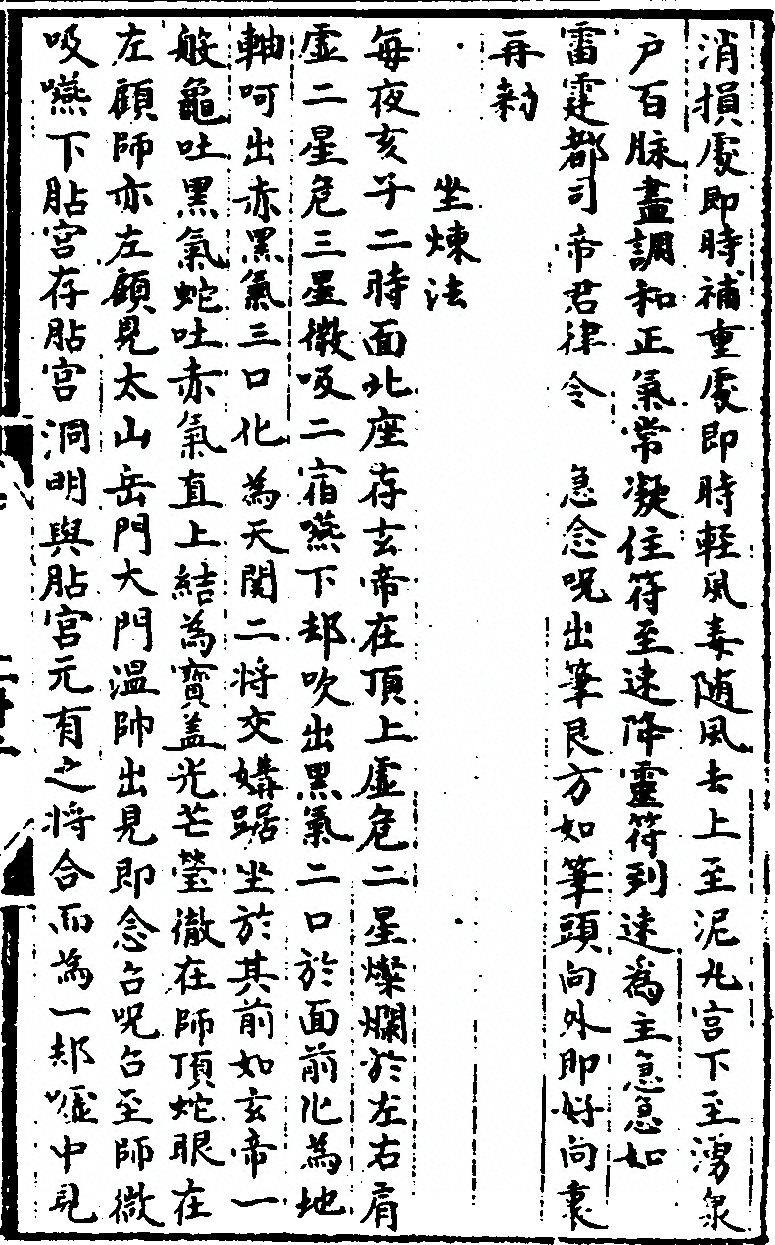 消損處即時補重處即時輕風毒随風去上至泥丸宫下至湧泉
户百脉盡調和正氣常凝住符至速降靈符到速為主急急如
雷霆都司帝君律令　急念呪出筆艮方如筆頭向外即好向裏
再勑
坐煉法
每夜亥子二時面北座存玄帝在頂上虛危二星燦爛於左右肩
虛二星危三星微吸二宿嚥下却吹出黑氣二口於面前化為地
軸呵出赤黑氣三口化為天関二将交媾踞坐於其前如玄帝一
般龜吐黑氣蛇吐赤氣直上結為寳盖光芒瑩徹在師頂蛇眼在
左顧師亦左顧見太山岳門大門溫帥出見即念召呪召至師微
吸嚥下貼宫存貼宫洞明與貼宫元有之将合而為一却嘘中見